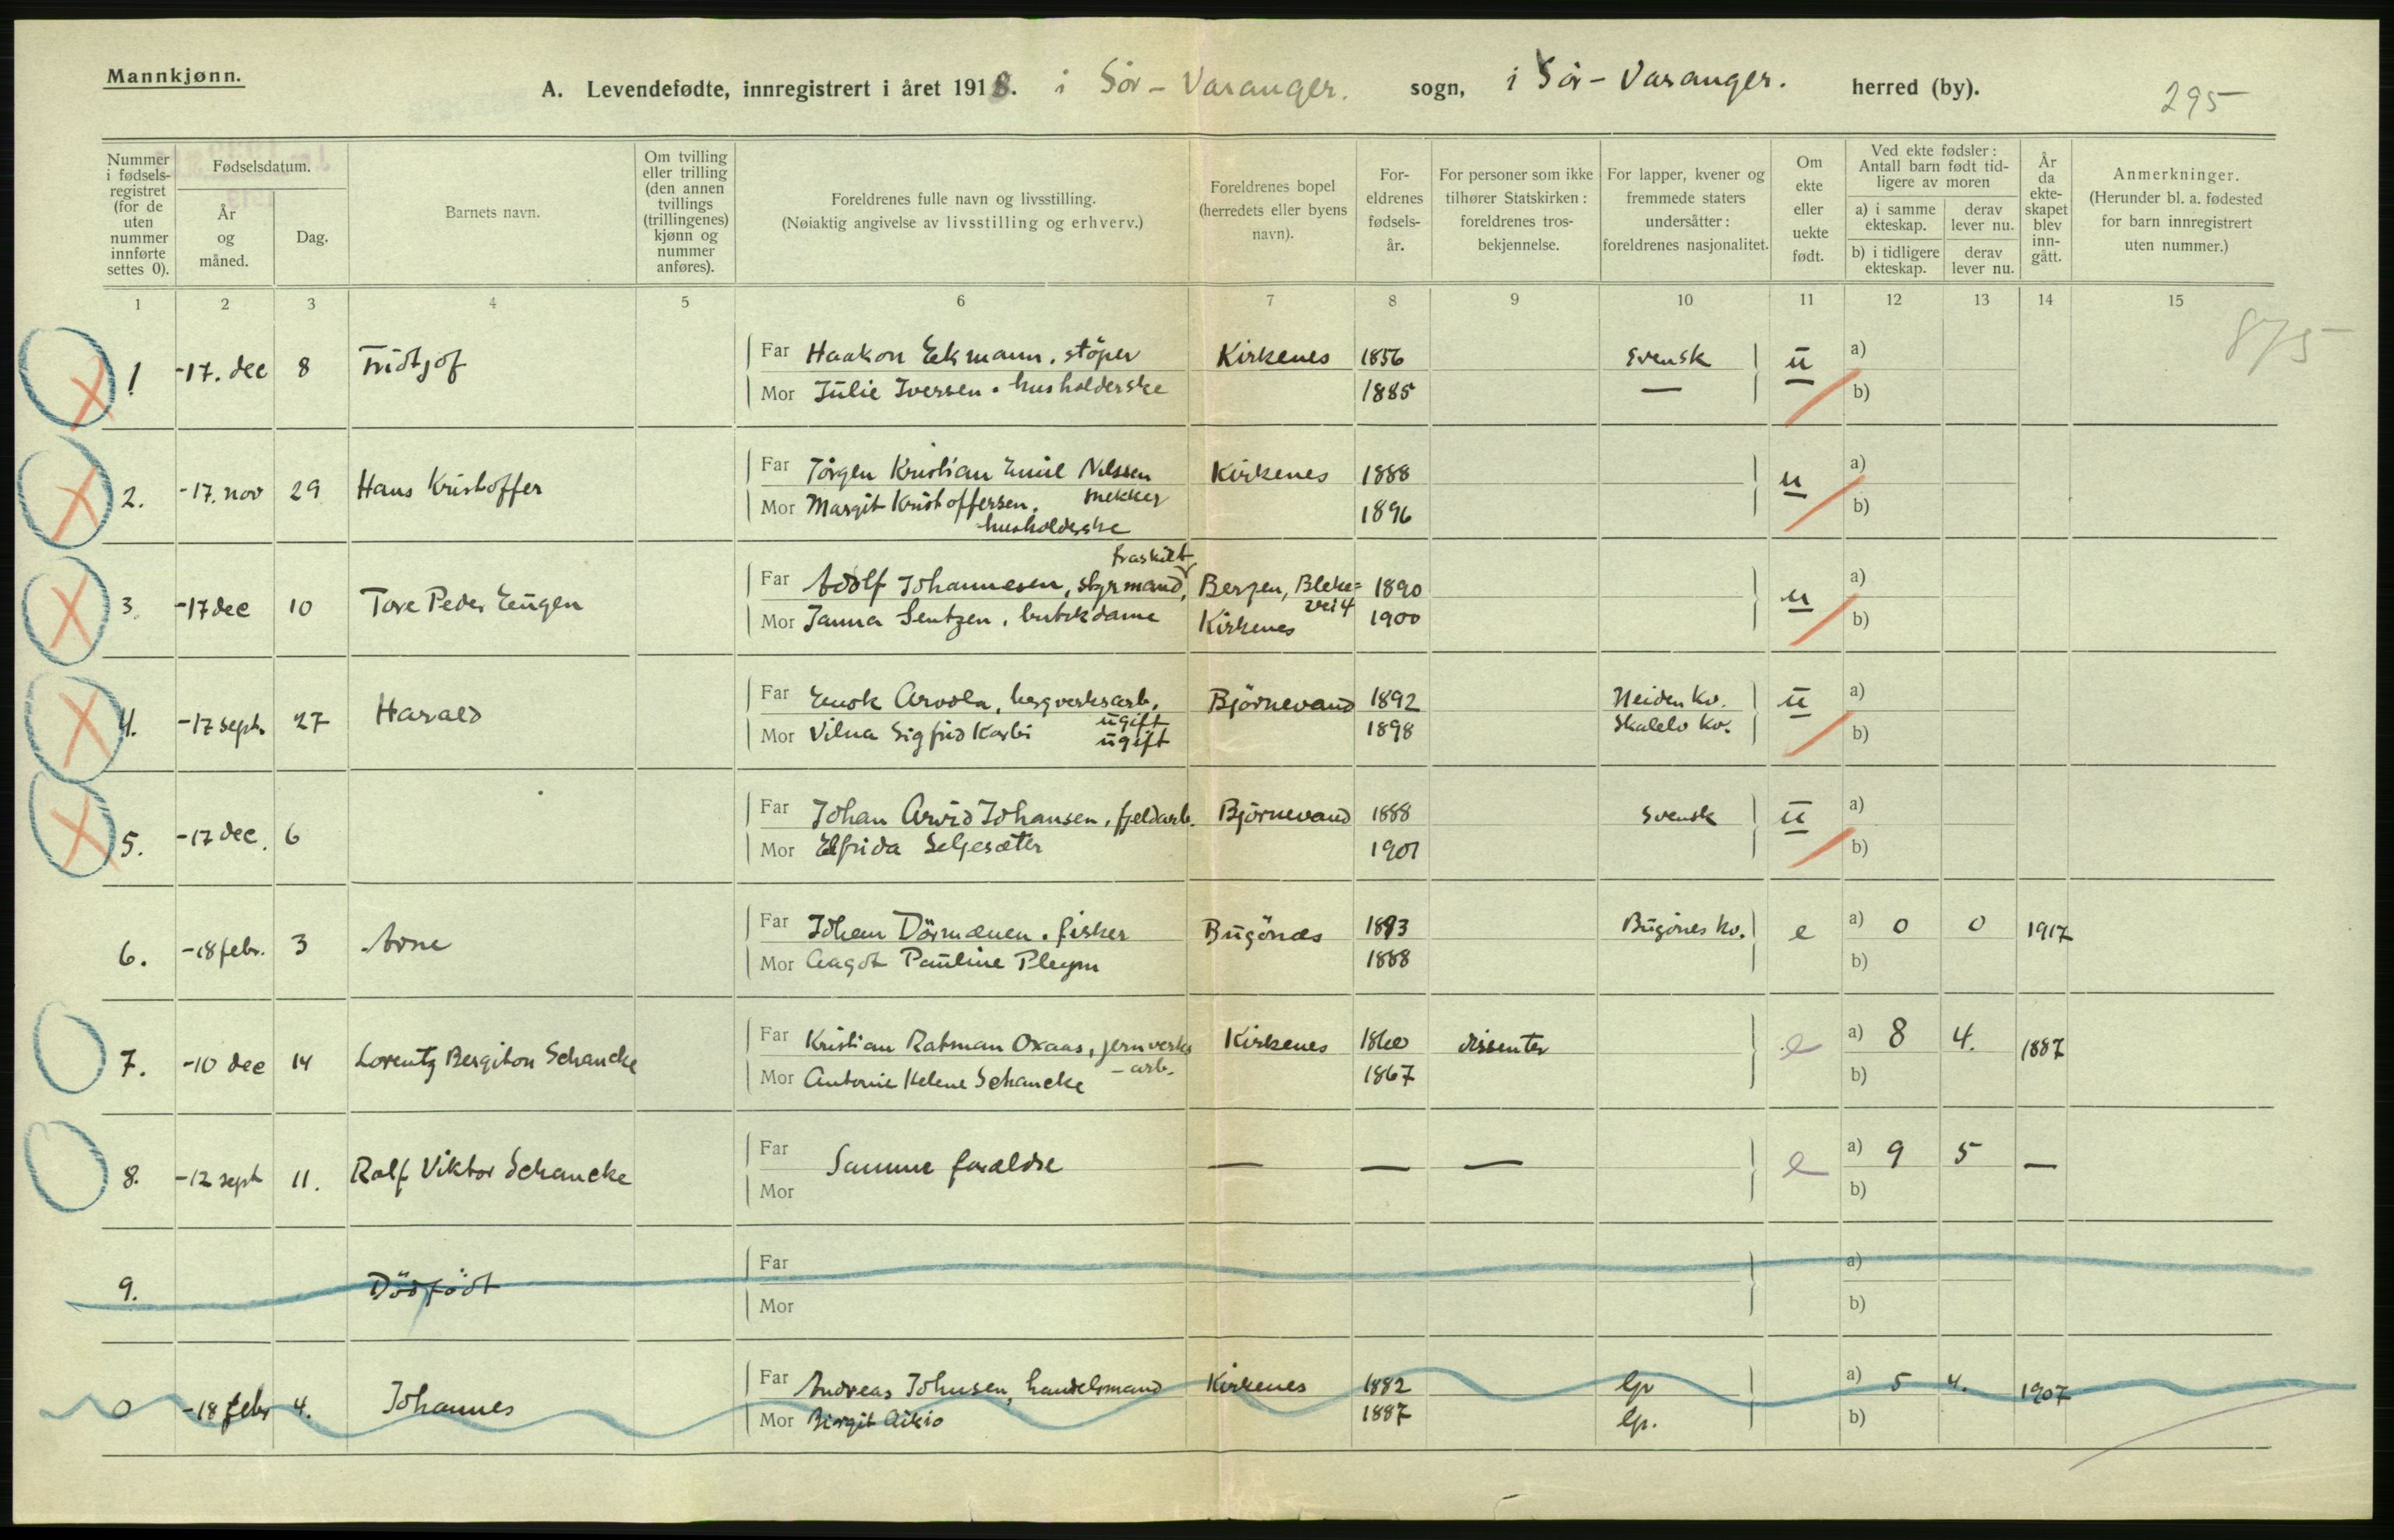 Mannkjønn.
A. Levendefødte, innregistrert i året 1918. i Sör-Varanger. sogn, i Sör-Varanger. herred (by).
295
Nummer i fødselsregistret (for de uten nummer innførte settes 0).
Fødselsdatum.
År og måned.
Dag.
Barnets navn.
Om tvilling eller trilling (den annen tvillings (trillingenes) kjønn og nummer anføres).
Foreldrenes fulle navn og livsstilling.
(Nøiaktig angivelse av livsstilling og erhverv.)
Foreldrenes bopel (herredets eller byens navn).
For-eldrenes fødsels-år.
For personer som ikke tilhører Statskirken: foreldrenes tros-bekjennelse.
For lapper, kvener og fremmede staters undersåtter: foreldrenes nasjonalitet.
Om ekte eller uekte født.
Ved ekte fødsler: Antall barn født tid-ligere av moren
a) i samme ekteskap. derav lever nu.
b) i tidligere ekteskap. derav lever nu.
År da ekte-skapet blev inn-gått.
Anmerkninger.
(Herunder bl. a. fødested for barn innregistrert uten nummer.)
1 2 3 4 5 6 7 8 9 10 11 12 13 14 15
875
1 -17. dec 8 Fridtjof Far Haakon Ekmann. støper Kirkenes 1856 Svensk ū a)
Mor Julie Iversen. husholderske 1885 — b)
2. -17. nov 29 Hans Kristoffer Far Jörgen Kristian Emil Nilssen Kirkenes 1888 u a)
Mor Margit Kristoffersen. mekker 1896 b)
husholderske
fraskilt
3. -17 dec 10 Tore Peder Eugen Far Adolf Johannesen, styrmand, Bergen, Bleke= 1890 u a)
vei 4
Mor Janna Sentzen, butikdame Kirkenes 1900 b)
4. -17 sept. 27 Harald Far Enok Arvola, bergverksarb. Björnevand 1892 Neiden kv. ū a)
ugift
Mor Vilna Sigfrid Karbi ugift 1898 kv. b)
5. -17 dec. 6 Far Johan Arvid Johansen, fjeldarb. Björnevand 1888 Svensk ū a)
Mor Elfrida Seljesæter 1901 b)
6. -18 febr. 3 Arne Far Johan Dörmænen. fisker Bugönæs 1883 Bugönes kv. e a) 0 0 1917
Mor Aagot Pauline Pleym 1888 b)
7. -10 dec 14 Lorentz Bergiton Schancke Far Kristian Ratman Oxaas, jernverks Kirkenes 1860 dissenter e a) 8 4. 1887
-arb.
Mor Antonie Helene Schancke 1867 b)
8. -12 sept 11. Ralf Viktor Schancke Far Samme forældre — — — e a) 9 5 —
Mor b)
9. Dödfödt Far a)
Mor b)
0 -18 febr 4. Johannes Far Andreas Johnsen, handelsmand Kirkenes 1882 lp a) 5 4. 1907
Mor Birgit Aikio 1887 lp. b)